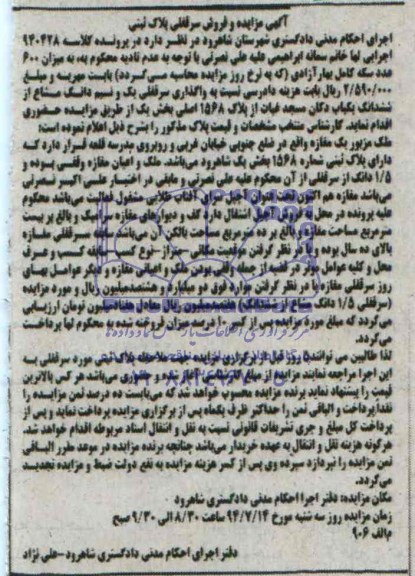 آگهی مزایده و فروش سرقفلی پلاک ثبتی
اجرای احکام مدنی دادگستری شهرستان شاهرود در نظر دارد در پرونده کلاسه ۹۴۰۴۲۸
اجرایی لها خانم سمانه ابراهیمی علیه علی نصرتی با توجه به عدم تادیه محکوم به، به میزان ۶۰۰
عدد سکه کامل بهار آزادی (که به نرخ روز مزایده محاسبه می‌گردد) بابت مهریه و مبلغ
۲/۵۹۰/۰۰۰ ریال بابت هزینه دادرسی نسبت به واگذاری سرقفلی یک و نیم دانگ مشاع از
ششدانگ یکباب دکان مسجد غیاث از پلاک ۱۵۶۸ اصلی بخش یک از طریق مزایده حضوری
اقدام نماید. کارشناس منتخب مشخصات و قیمت پلاک مذکور را بشرح ذیل اعلام نموده است:
ملک مزبور یک مغازه واقع در ضلع جنوبی خیابان غربی و روبروی مدرسه قلعه قرار دارد که
دارای پلاک ثبتی شماره ۱۵۶۸ بخش یک شاهرود می‌باشد. ملک و اعیان مغازه وقفی بوده و
۱/۵ دانگ از سرقفلی از آن محکوم علیه علی نصرتی و مابقی در اختیار علی اکبر نصرتی
می‌باشد مغازه هم اکنون تحت عنوان آجیل سرای آفتاب طلایی مشغول فعالیت می‌باشد محکوم
علیه پرونده در محل به فروش آجیل اشتغال دارد کف و دیوارهای مغازه سرامیک و بالغ بر بیست
مترمربع مساحت مغازه بالغ بر ده مترمربع مساحت بالکن آن می‌باشد سابقه سرقفلی مغازه
بالای ده سال بوده و با در نظر گرفتن موقعیت مکانی متراژ-نوع کسب سابقه کسب و عرف
محل و کلیه عوامل موثر در قضیه از جمله وقفی بودن ملک و اعیانی مغازه و دیگر عوامل بهای
روز سرقفلی مغازه با در نظر گرفتن موارد فوق دو میلیارد و هشتصدمیلیون ریال و مورد مزایده
(سرقفلی ۱/۵ دانگ مشاع از ششدانگ) هفتصدمیلیون ریال معادل هفتادمیلیون تومان ارزیابی
می‌گردد که مبلغ مورد مزایده پس از کسر ۱۰ درصد میزان فروخته شده به محکوم لها پرداخت
می‌گردد.
لذا طالبین می توانند ۵ روز قبل از برگزاری مزایده جهت ملاحظه پلاک ثبتی مورد سرقفلی به
این اجرا مراجعه نمایند مزایده از مبلغ کارشناسی آغاز شده و حضوری می‌باشد هر کس بالاترین
قیمت را پیشنهاد نماید برنده مزایده محسوب خواهد شد که می‌بایست ده درصد ثمن مزایده را
نقدا پرداخت و الباقی ثمن را حداکثر ظرف یکماه پس از برگزاری مزایده پرداخت نماید و پس از
پرداخت کل مبلغ و جری تشریفات قانونی نسبت به نقل و انتقال اسناد مربوطه اقدام خواهد شد.
هرگونه هزینه نقل و انتقال به عهده خریدار می‌باشد چنانچه برنده مزایده در موعد طور الباقی
ثمن مزایده را نپردازد سپرده وی پس از کسر هزینه مزایده به نفع دولت ضبط و مزایده تجدید
می‌گردد.
مکان مزایده: دفتر اجرا احکام مدنی دادگستری شاهرود
زمان مزایده روز سه شنبه مورخ ۹۴/۷/۱۴ ساعت ۸/۳۰ الی ۹/۳۰ صبح
م/الف ۹۰۶
دفتر اجرای احکام مدنی دادگستری شاهرود-علی نژاد